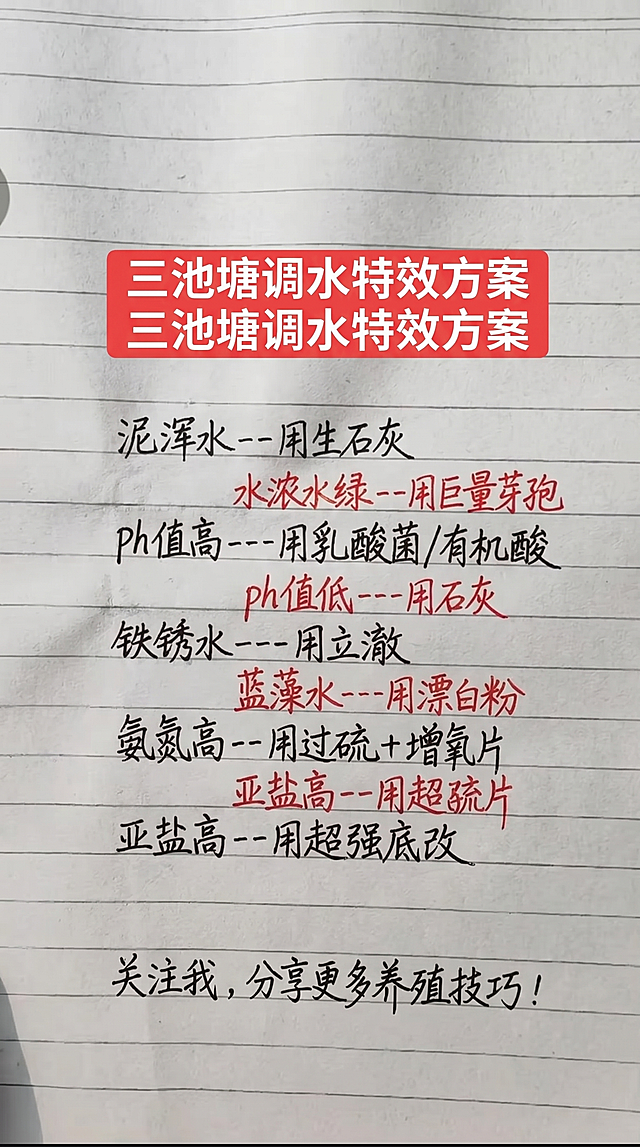 三池塘调水特效方案
三池塘调水特效方案
泥浑水--用生石灰
水浓水绿---用巨量芽孢
ph值高---用乳酸菌/有机酸
ph值低---用石灰
铁锈水---用立澈
蓝藻水---用漂白粉
氨氮高--用过硫+增氧片
亚盐高--用超疏片
亚盐高--用超强底改
关注我,分享更多养殖技巧!